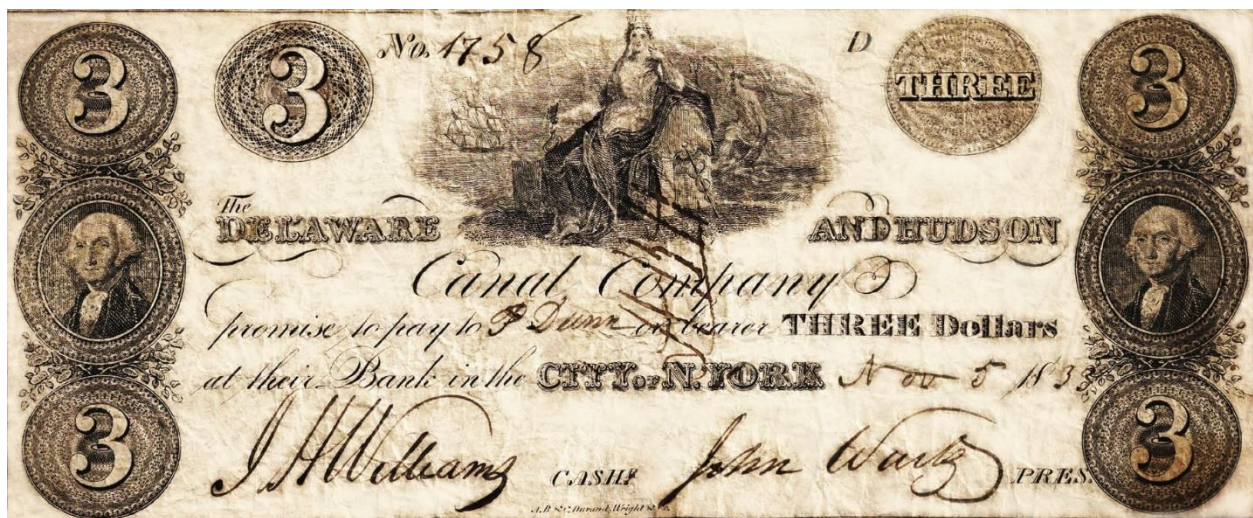 3 3 No. 1758 D THREE 3
The
DELAWARE AND HUDSON
Canal Company
promise to pay to P Dunn or bearer THREE Dollars
at their Bank in the CITY OF N. YORK Nov 5 183
J H Williams CASHR. John Wurts PRES.
3 3
A.B. & C. Durand, Wright & Co.